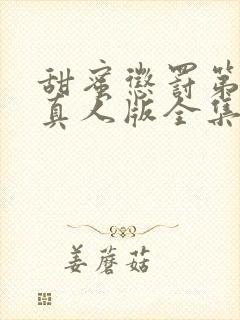 甜蜜惩罚第
真人版全集
姜蘑菇